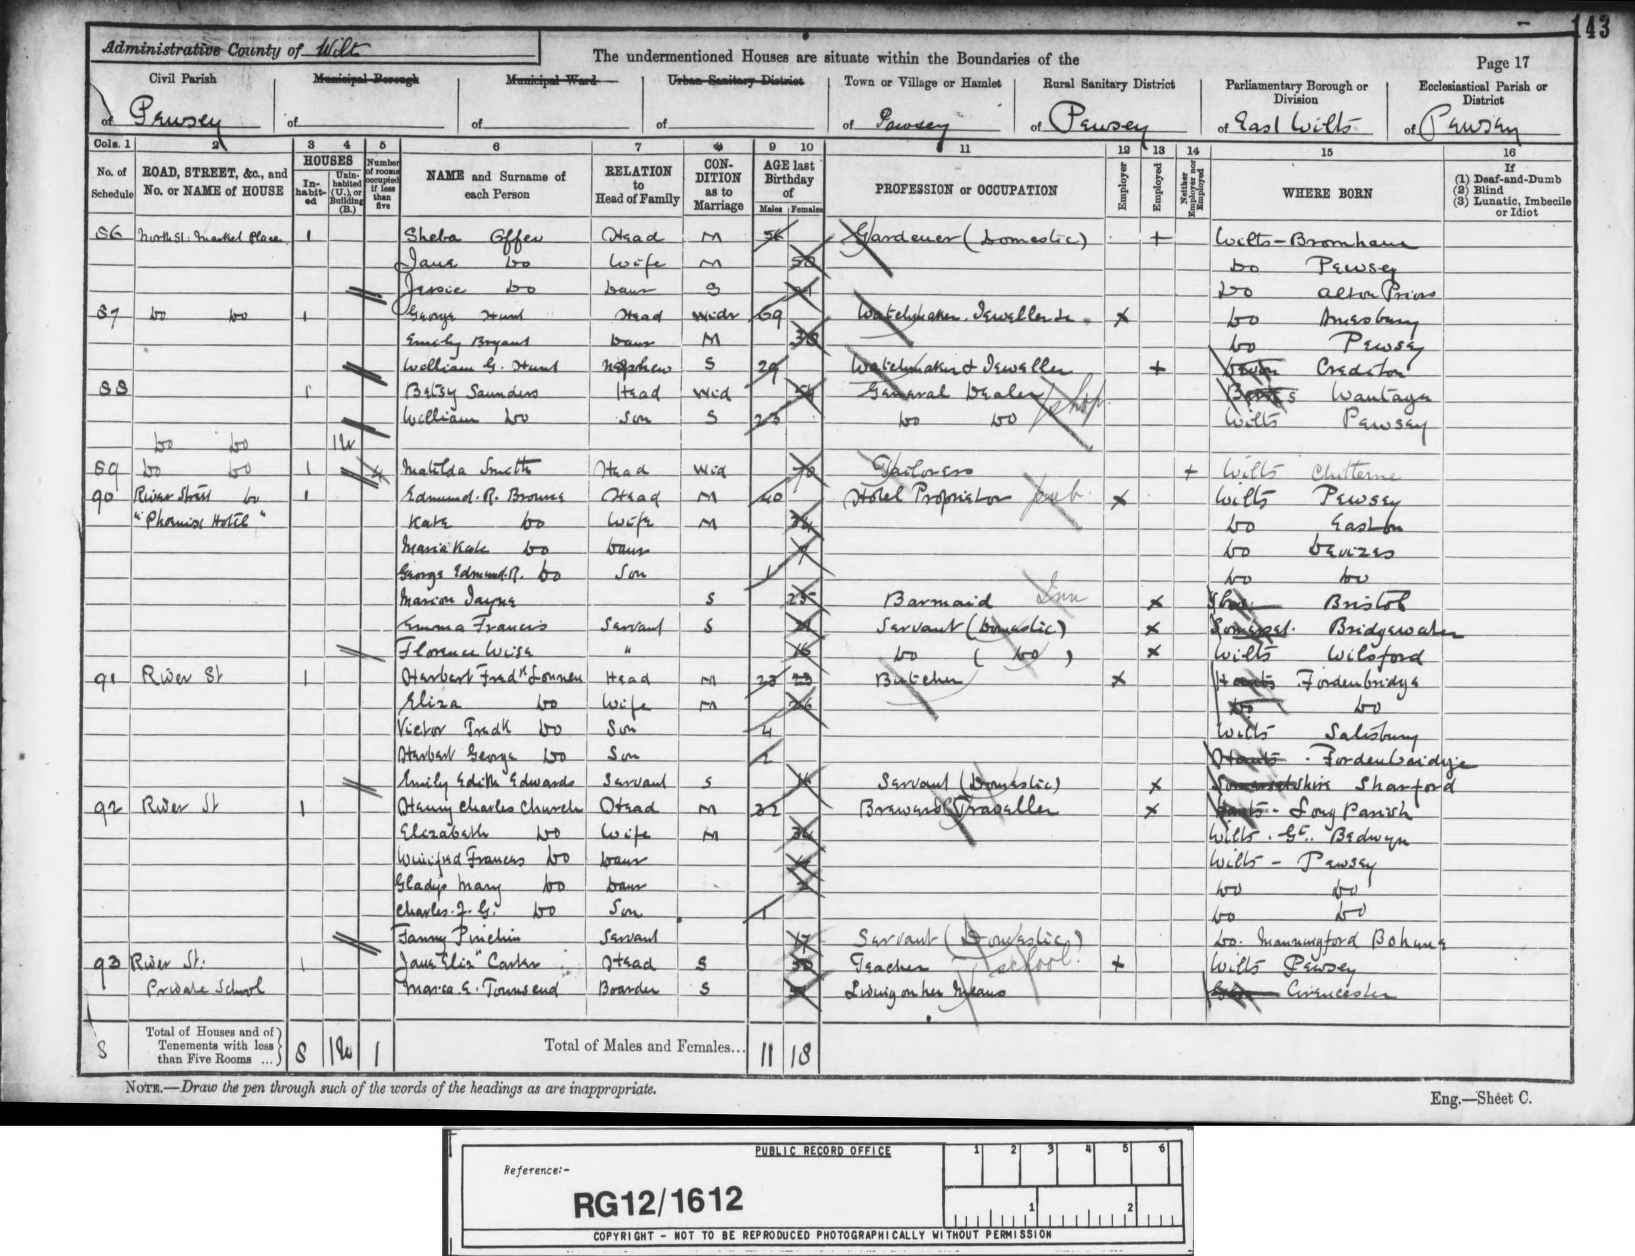 143
Administrative County of Wilts
The undermentioned Houses are situate within the Boundaries of the
Page 17
Civil Parish Municipal Borough Municipal Ward Urban Sanitary District Town or Village or Hamlet Rural Sanitary District Parliamentary Borough or Division Ecclesiastical Parish or District
of Pewsey of of of of Pewsey of Pewsey of East Wilts of Pewsey
Cols. 1 2 3 4 5 6 7 8 9 10 11 12 13 14 15 16
No. of Schedule ROAD, STREET, &c., and No. or NAME of HOUSE HOUSES Inhabited Uninhabited (U.), or Building (B.) Number of rooms occupied if less than five NAME and Surname of each Person RELATION to Head of Family CONDITION as to Marriage AGE last Birthday of Males Females PROFESSION or OCCUPATION Employer Employed Neither Employer nor Employed WHERE BORN If (1) Deaf-and-Dumb (2) Blind (3) Lunatic, Imbecile or Idiot
86 North St. Market Place 1 Sheba Offer Head M 56 Gardener (Domestic) + Wilts - Bromham
Jane Do Wife M Do Pewsey
Jessie Do Daur S Do Alton Priors
87 Do Do 1 George Hunt Head Widr 69 Watchmaker. Jeweller &c. X Do Amesbury
Emily Bryant Daur M 38 Do Pewsey
William G. Hunt Nephew S 29 Watchmaker & Jeweller + Devon Crediton
88 1 Betsy Saunders Head Wid General Dealer shop Berks Wantage
William Do Son S 23 Do Do Wilts Pewsey
Do Do 1U
89 Do Do 1 4 Matilda Smith Head Wid 70 Tailoress + Wilts Chitterne
90 River Street Do 1 Edmund. R. Browne Head M 40 Hotel Proprietor pub X Wilts Pewsey
"Phoenix Hotel" Kate Do Wife M 34 Do Easton
Maria Kate Do Daur 7 Do Devizes
George Edmund. R. Do Son 1 Do Do
Marion Jayne S 25 Barmaid Inn X Glos. Bristol
Emma Francis Servant S 21 Servant (Domestic) X Somerset. Bridgewater
Florence Weise " 16 Do (Do) X Wilts Wilsford
91 River St 1 Herbert Fredk Head M 23 23 Butcher X Hants Fordenbridge
Eliza Do Wife M 26 Do Do
Victor Fredk Do Son 4 Wilts Salisbury
Herbert George Do Son 2 Hants. Fordenbridge
Emily Edith Edwards Servant S 16 Servant (Domestic) X Somersetshire Sharford
92 River St 1 Henry Charles Church Head M 32 Brewers Traveller X Hants - Long Parish
Elizabeth Do Wife M 34 Wilts. Gt. Bedwyn
Winifred Frances Do Daur Wilts - Pewsey
Gladys Mary Do Daur Do Do
Charles. J. G. Do Son 1 Do Do
Fanny Pinchin Servant 17 Servant (Domestic) Do. Manningford Bohune
93 River St. 1 Jane Eliz" Carter Head S 50 Teacher school X Wilts Pewsey
Private School Maria. E. Townsend Boarder S Living on her Means Cirencester
8 Total of Houses and of Tenements with less than Five Rooms ... 8 1U 1 Total of Males and Females... 11 18
NOTE.—Draw the pen through such of the words of the headings as are inappropriate.
Eng.—Sheet C.
PUBLIC RECORD OFFICE
1 2 3 4 5 6
Reference:-
RG12/1612
1 2
COPYRIGHT - NOT TO BE REPRODUCED PHOTOGRAPHICALLY WITHOUT PERMISSION